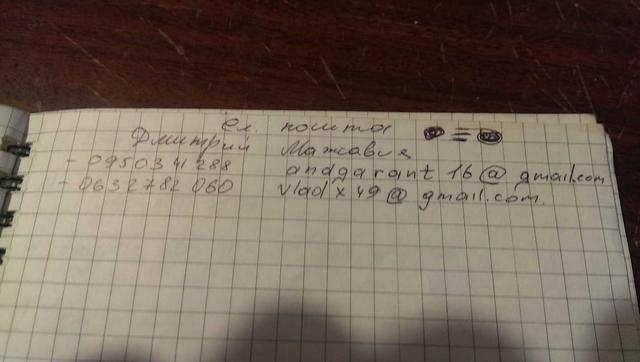 Ел. пошта =
Дмитрий Мажавия
- 0950341288 andgarant 16@ gmail.com
- 0632782060 vlad x 49@ gmail.com.